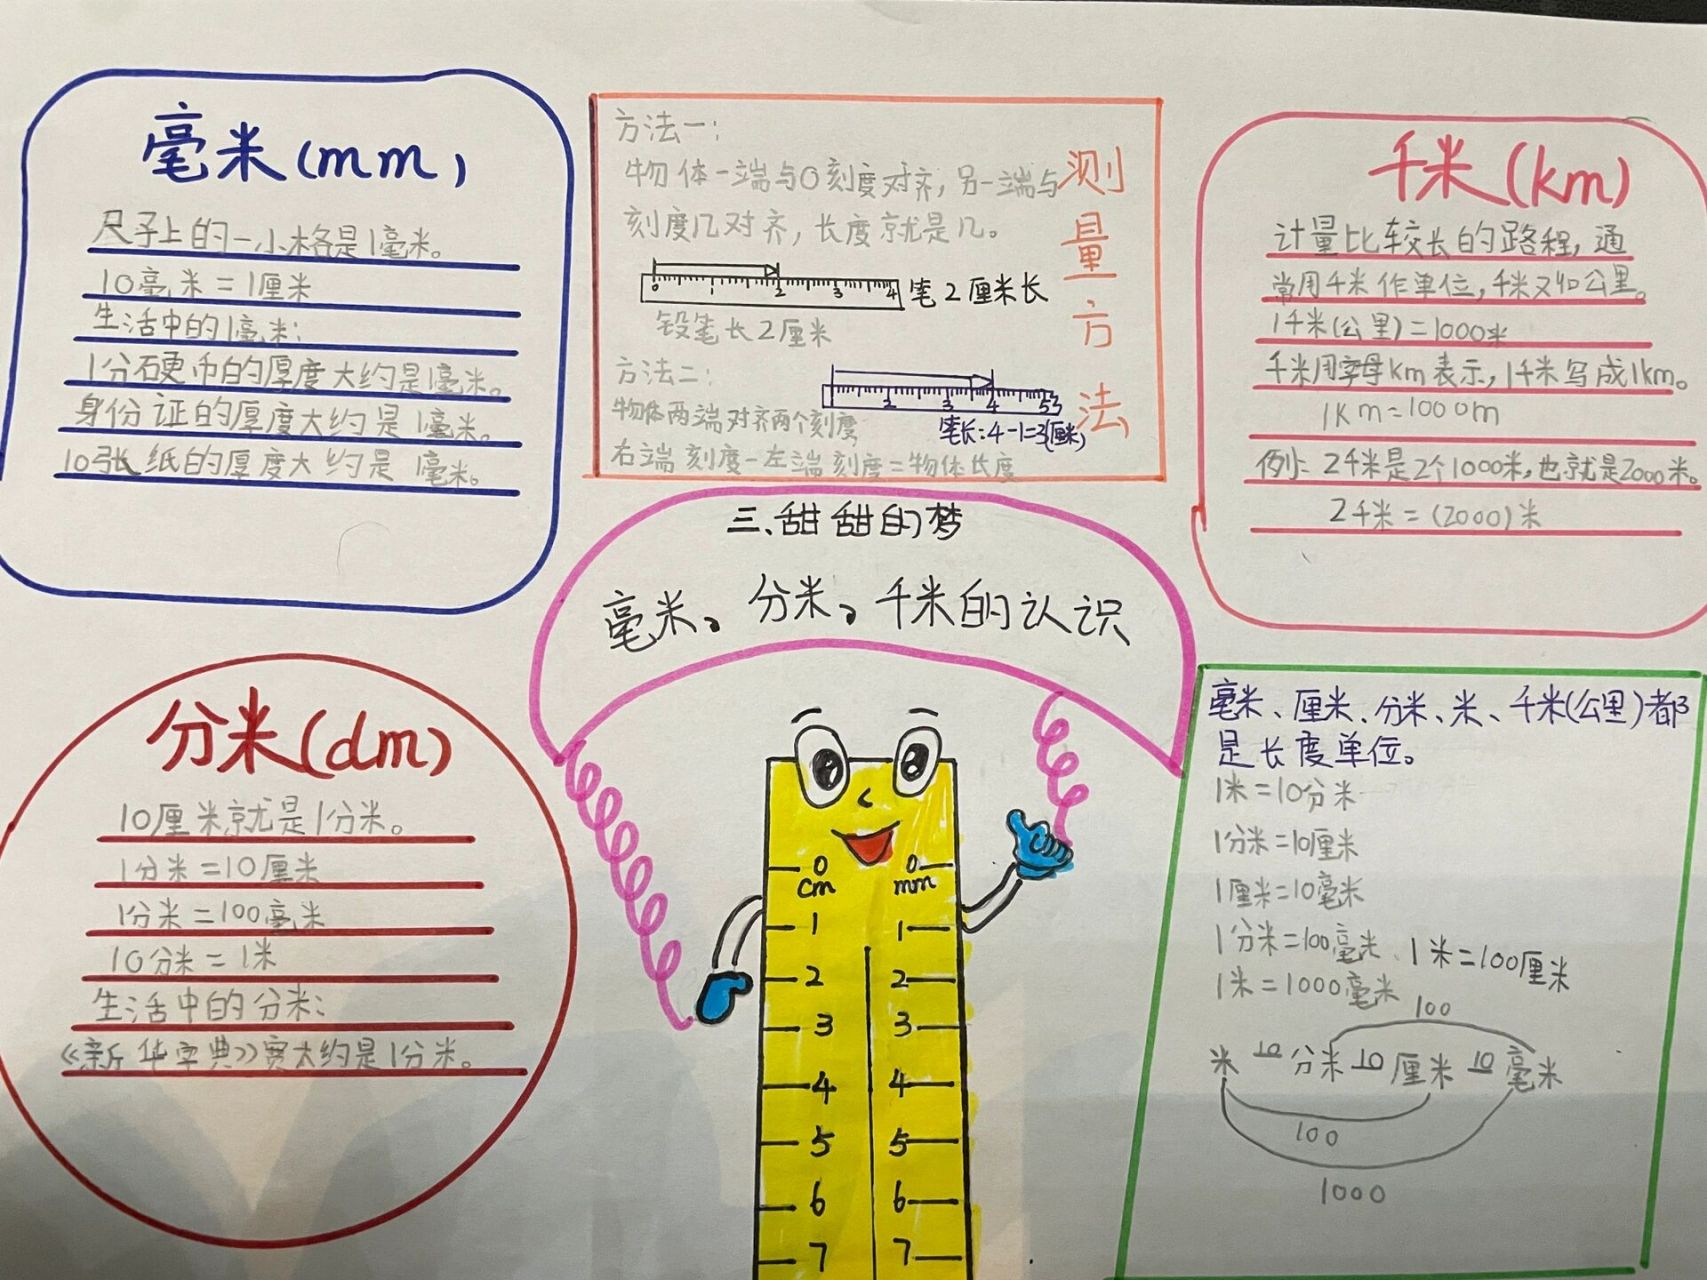 毫米(mm)
尺子上的一小格是1毫米。
10毫米=1厘米
生活中的1毫米:
1分硬币的厚度大约是1毫米。
身份证的厚度大约是1毫米。
10张纸的厚度大约是1毫米。
测量方法
方法一:
物体一端与0刻度对齐,另一端与
刻度几对齐,长度就是几。
0 1 2 3 4
笔2厘米长
铅笔长2厘米
方法二:
物体两端对齐两个刻度
2 3 4 53
笔长:4-1=3(厘米)
右端刻度-左端刻度=物体长度
千米(km)
计量比较长的路程,通
常用千米作单位,千米又叫公里。
1千米(公里)=1000米
千米用字母km表示,1千米写成1km。
1Km=1000m
例:2千米是2个1000米,也就是2000米。
2千米=(2000)米
三、甜甜的梦
毫米、分米、千米的认识
分米(dm)
10厘米就是1分米。
1分米=10厘米
1分米=100毫米
10分米=1米
生活中的分米:
《新华字典》宽大约是1分米。
0 0
cm mm
1 1
2 2
3 3
4 4
5 5
6 6
7 7
毫米、厘米、分米、米、千米(公里)都
是长度单位。
1米=10分米
1分米=10厘米
1厘米=10毫米
1分米=100毫米、1米=100厘米
1米=1000毫米
100
米 10 分米 10 厘米 10 毫米
100
1000